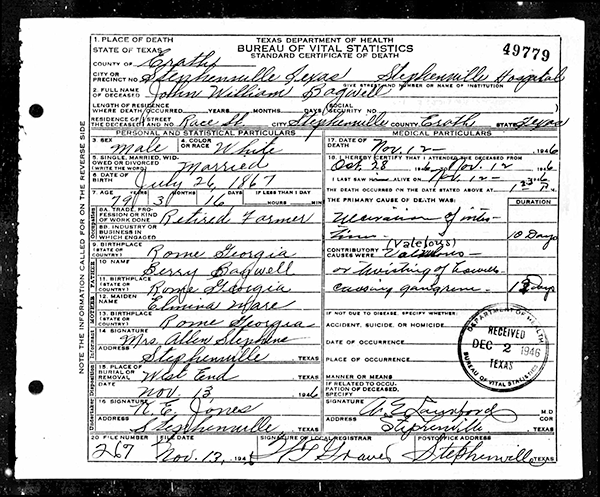 1. PLACE OF DEATH
STATE OF TEXAS
TEXAS DEPARTMENT OF HEALTH
BUREAU OF VITAL STATISTICS
STANDARD CERTIFICATE OF DEATH
49779
COUNTY OF Erath
CITY OR PRECINCT NO. Stephenville Texas Stephenville Hospital
GIVE STREET AND NUMBER OR NAME OF INSTITUTION
2. FULL NAME OF DECEASED John William Bagwell
LENGTH OF RESIDENCE WHERE DEATH OCCURRED YEARS MONTHS DAYS (SOCIAL SECURITY NO.)
RESIDENCE OF THE DECEASED STREET AND NO. Race St. CITY Stephenville COUNTY Erath STATE Texas
PERSONAL AND STATISTICAL PARTICULARS
3. SEX Male 4. COLOR OR RACE White
5. SINGLE, MARRIED, WIDOWED OR DIVORCED (WRITE THE WORD) Married
6. DATE OF BIRTH July 26, 1867
7. AGE YEARS MONTHS DAYS IF LESS THAN 1 DAY
79 3 16 HOURS MIN
8A. TRADE, PROFESSION OR KIND OF WORK DONE Retired Farmer
8B. INDUSTRY OR BUSINESS IN WHICH ENGAGED
9. BIRTHPLACE (STATE OR COUNTRY) Rome Georgia
10. NAME Berry Bagwell
11. BIRTHPLACE (STATE OR COUNTRY) Rome Georgia
12. MAIDEN NAME Elmina Mare
13. BIRTHPLACE (STATE OR COUNTRY) Rome Georgia
14. SIGNATURE Mrs. Allen Stephens
ADDRESS Stephenville TEXAS
15. PLACE OF BURIAL OR REMOVAL West End TEXAS
DATE Nov. 13, 1946
16. SIGNATURE R. E. Jones
ADDRESS Stephenville, TEXAS
Occupation
FATHER
MOTHER
Informant
Disposition
Undertaker
NOTE THE INFORMATION CALLED FOR ON THE REVERSE SIDE
MEDICAL PARTICULARS
17. DATE OF DEATH Nov. 12- 1946
18. I HEREBY CERTIFY THAT I ATTENDED THE DECEASED FROM
Oct. 28 1946 TO Nov. 12 1946
I LAST SAW ALIVE ON 1946
THE DEATH OCCURRED ON THE DATE STATED ABOVE AT
THE PRIMARY CAUSE OF DEATH WAS: DURATION
10 Days
CONTRIBUTORY CAUSES WERE (Valvelous)
or twisting of bowels
causing gangrene
Days
IF NOT DUE TO DISEASE, SPECIFY WHETHER:
ACCIDENT, SUICIDE, OR HOMICIDE
DATE OF OCCURRENCE
PLACE OF OCCURRENCE
MANNER OR MEANS
IF RELATED TO OCCUPATION OF DECEASED, SPECIFY
SIGNATURE M D
ADDRESS COR TEXAS
DEPARTMENT OF HEALTH
RECEIVED
DEC 2 1946
TEXAS
BUREAU OF VITAL STATISTICS
20. FILE NUMBER FILE DATE SIGNATURE OF LOCAL REGISTRAR POSTOFFICE ADDRESS
267 Nov. 13, 194 Stephenville TEXAS